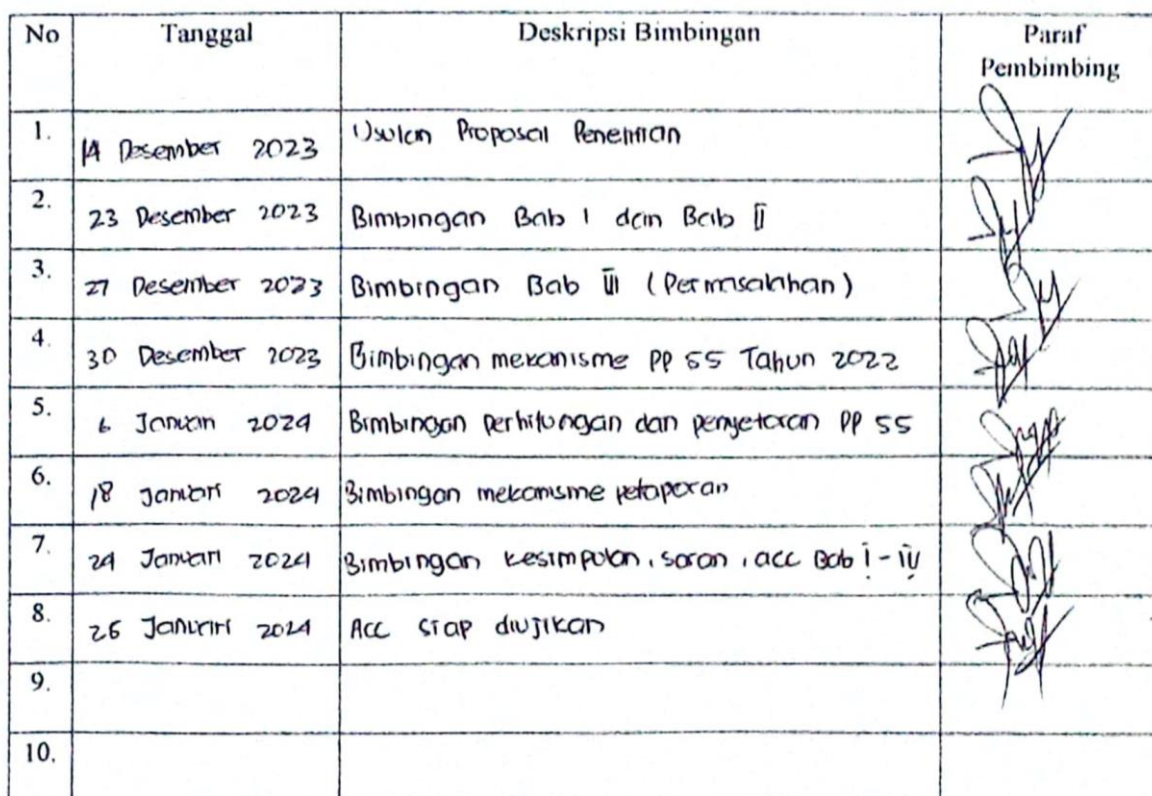 No Tanggal Deskripsi Bimbingan Paraf
Pembimbing
1. 14 Desember 2023 Usulan Proposal Penelitian
2. 23 Desember 2023 Bimbingan Bab I dan Bab II
3. 27 Desember 2023 Bimbingan Bab III (Permasalahan)
4. 30 Desember 2023 Bimbingan mekanisme PP 55 Tahun 2022
5. 6 Januari 2024 Bimbingan perhitungan dan penyetoran PP 55
6. 18 Januari 2024 Bimbingan mekanisme pelaporan
7. 24 Januari 2024 Bimbingan kesimpulan, saran, acc Bab I - IV
8. 26 Januari 2024 Acc siap diujikan
9.
10.